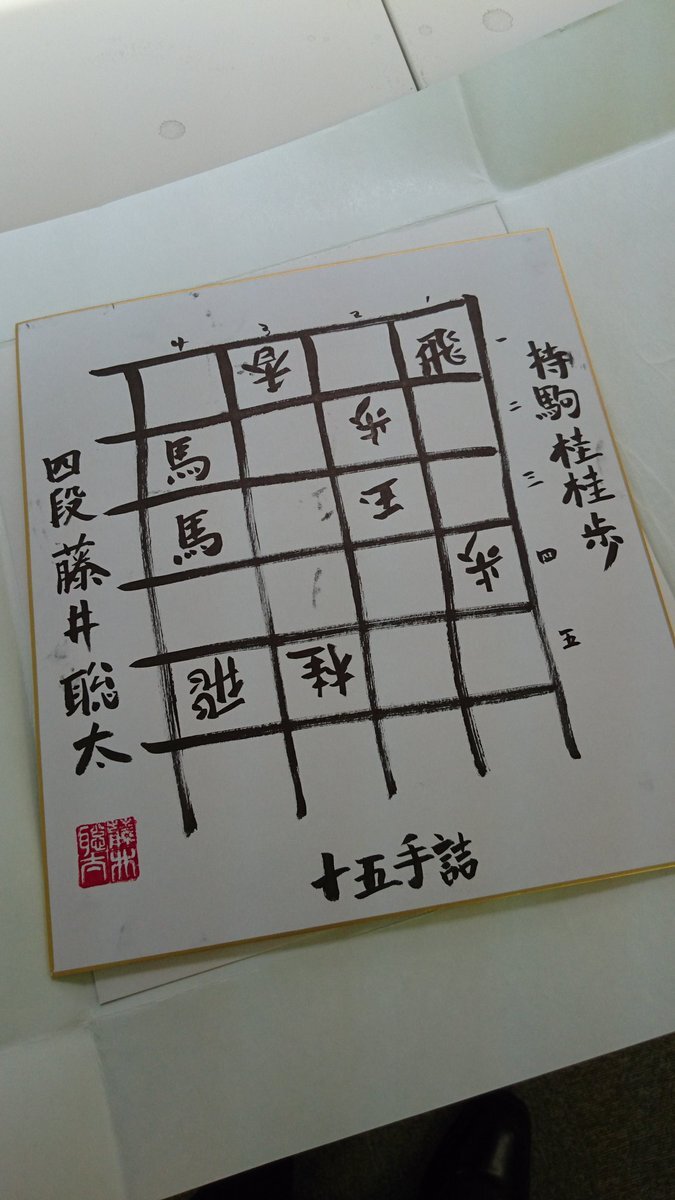 持駒桂桂歩
4 3 2 1
香 飛 一
馬 歩 二
馬 玉 三
歩 四
飛 桂 五
四段 藤井聡太
十五手詰
藤井聡太